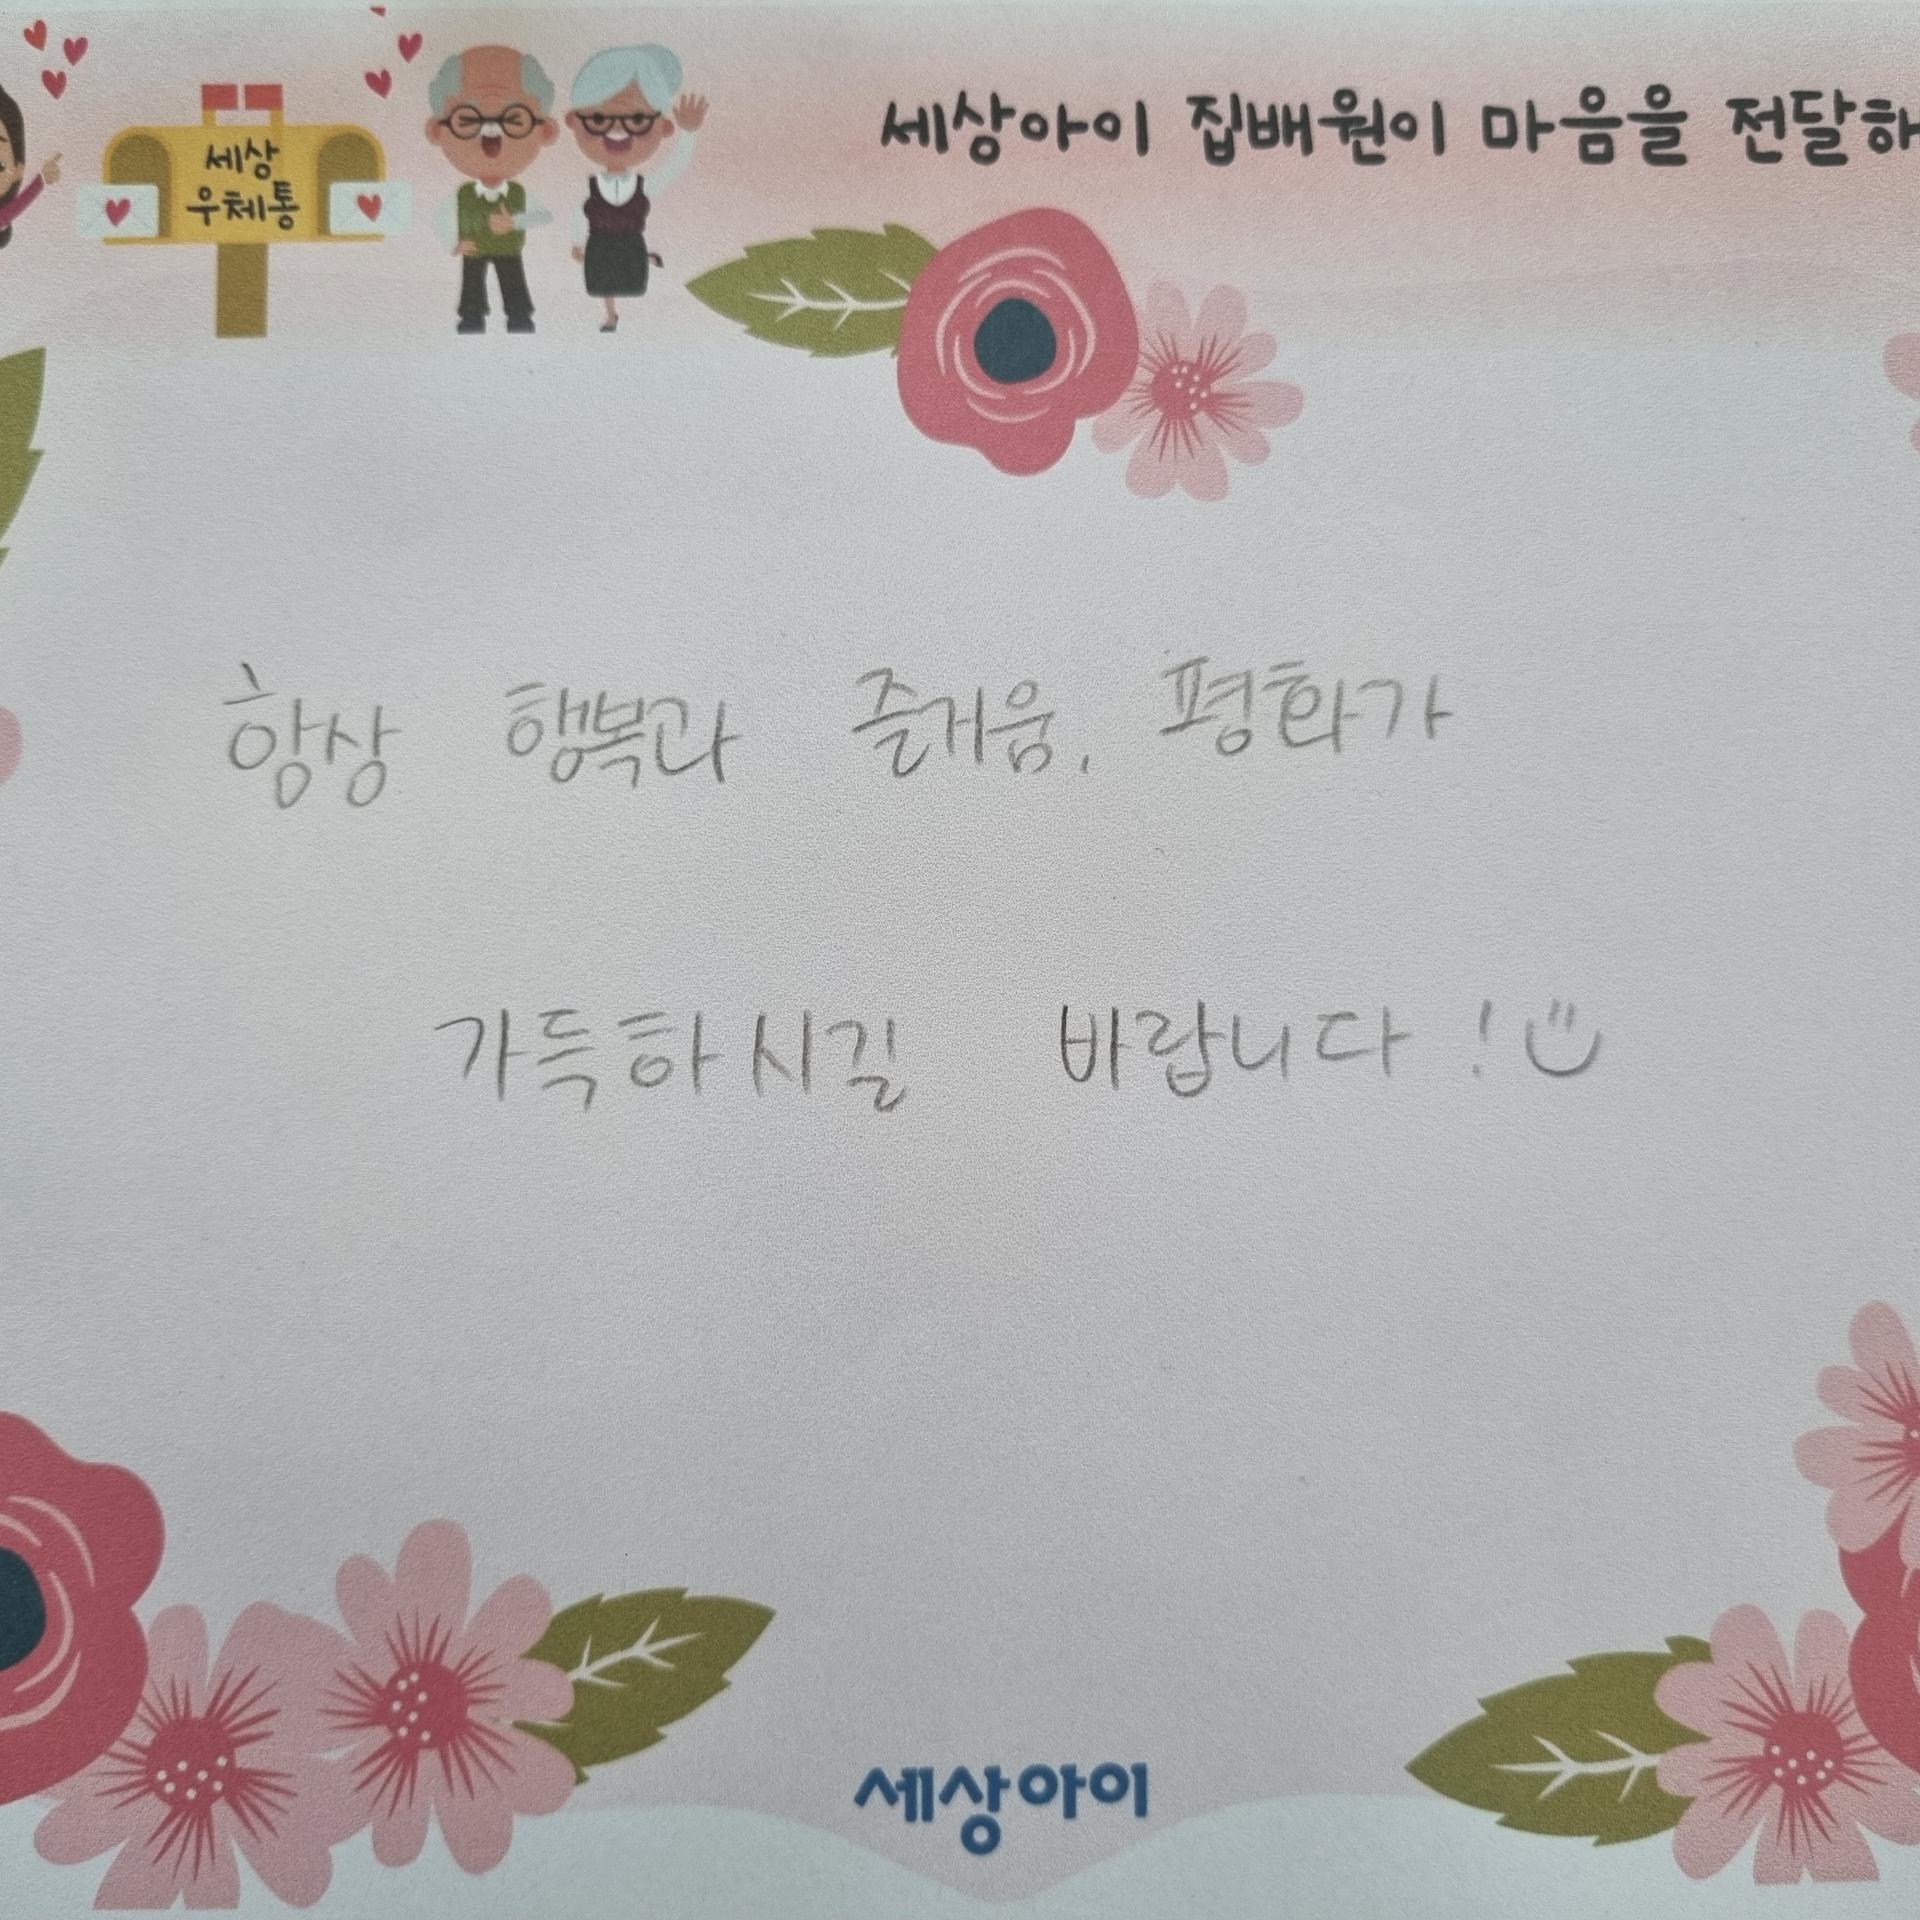 세상아이 집배원이 마음을 전달해
세상
우체통
항상 행복과 즐거움, 평화가
가득하시길 바랍니다!
세상아이